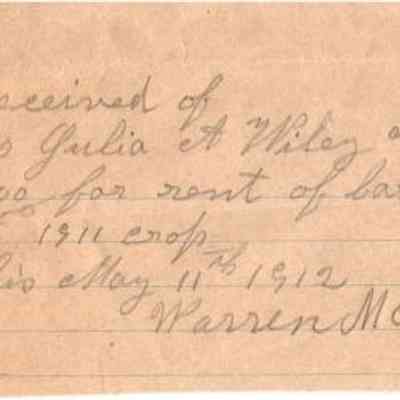 eceived of
s Julia A Wiley
00 for rent of ba
1911 crop
is May 11th 1912
Warren Mc